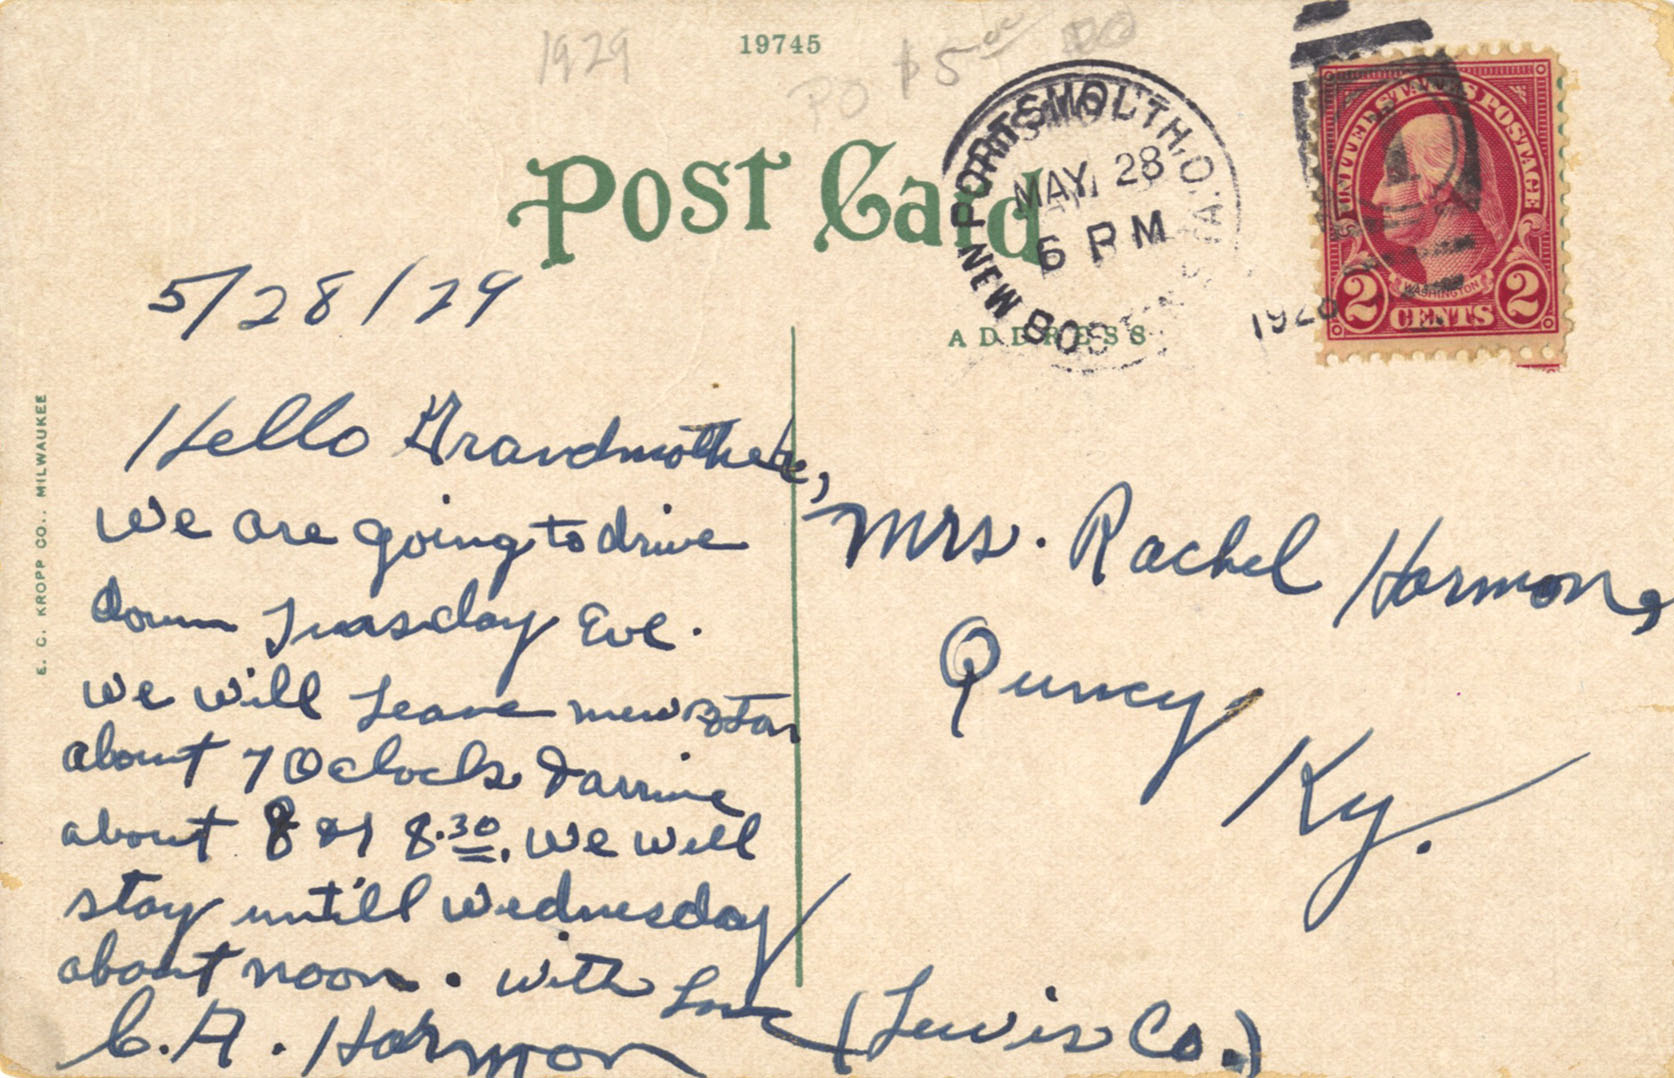 1929
19745
PO $5.00 PO
Post Card
PORTSMOUTH, O.
MAY 28
6 PM
NEW BOS STA.
1928
UNITED STATES POSTAGE
WASHINGTON
2 CENTS 2
ADDRESS
E. C. KROPP CO., MILWAUKEE
5/28/29
Hello Grandmother,
We are going to drive
down Tuesday Eve.
we will Leave
about 7 Oclock arrive
about 8 or 8.30. We will
stay untill Wednesday
about noon. With Love
C. A. Harmon
Mrs. Rachel Harmon,
Quincy
Ky.
(Lewis Co.)